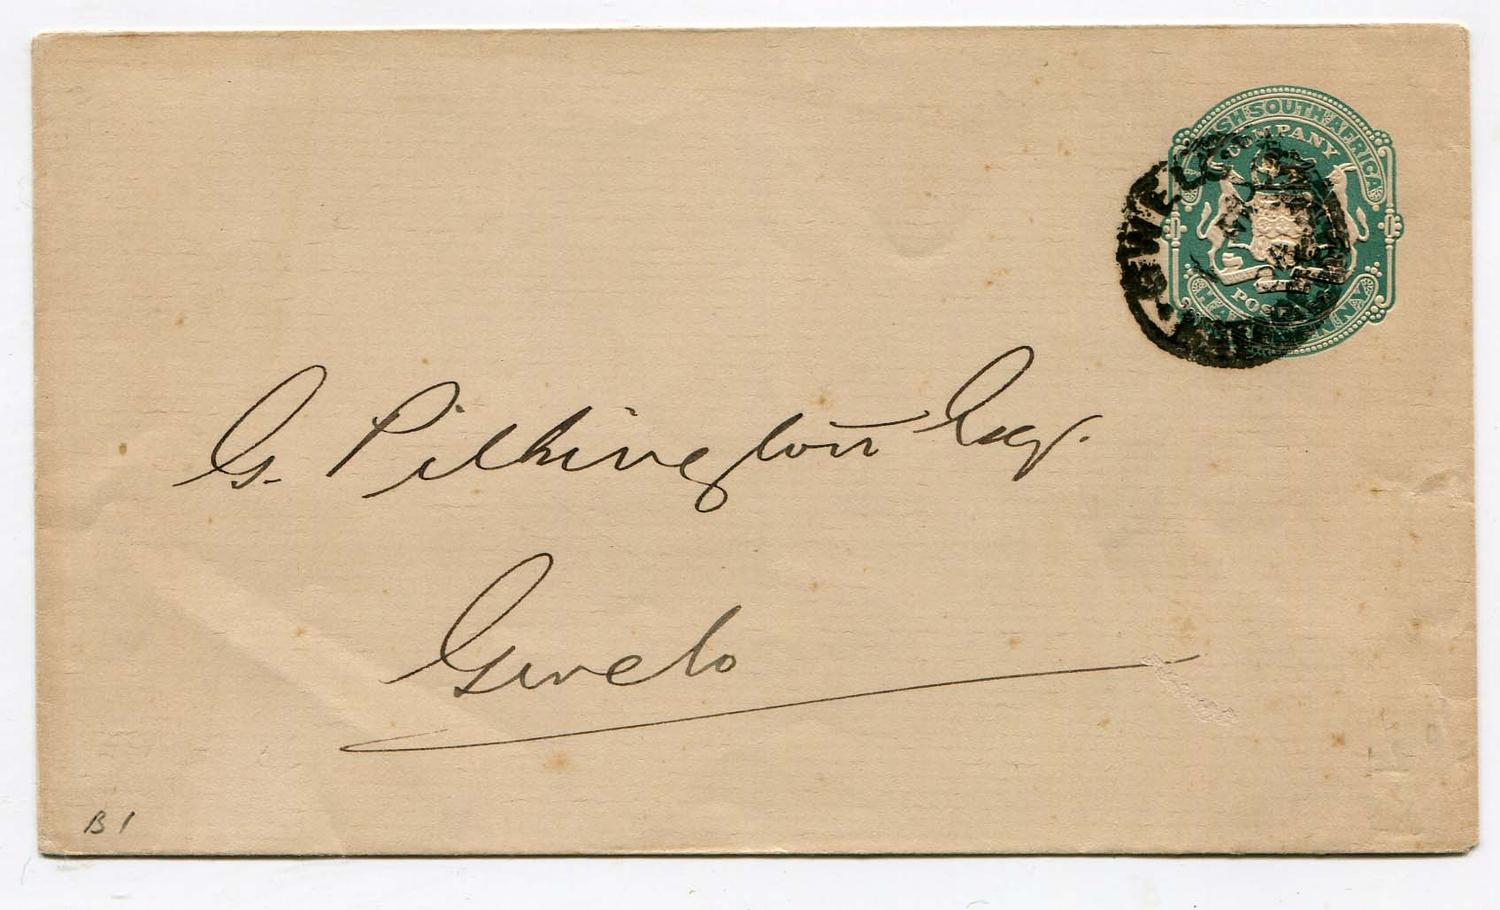 BRITISH SOUTH AFRICA
COMPANY
POSTAGE
HALFPENNY
GWELO
G. Pilkington Esq.
Gwelo
B1